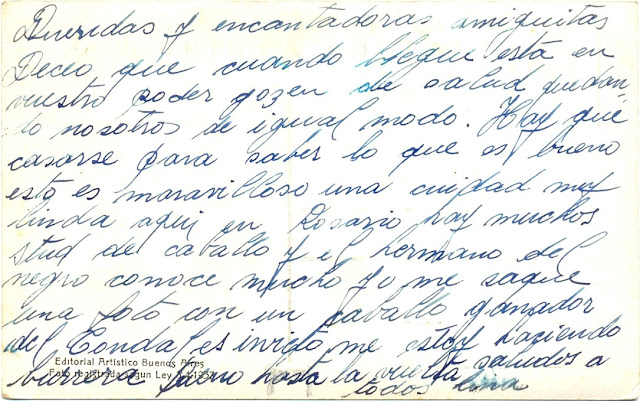 Queridas y encantadoras amiguitas
Deceo que cuando llegue esta en
vuestro poder gozen de salud quedan-
do nosotros de igual modo. Hay que
casarse para saber lo que es bueno
esto es maravilloso una cuidad muy
linda aqui en Rosario hay muchos
stud de caballo y el hermano del
negro conoce mucho yo me saque
una foto con un caballo ganador
del es invicto me estoy haciendo
burrera bueno hasta la vuelta saludos a
todos
Editorial Artístico Buenos Aires
Foto registrada segun Ley